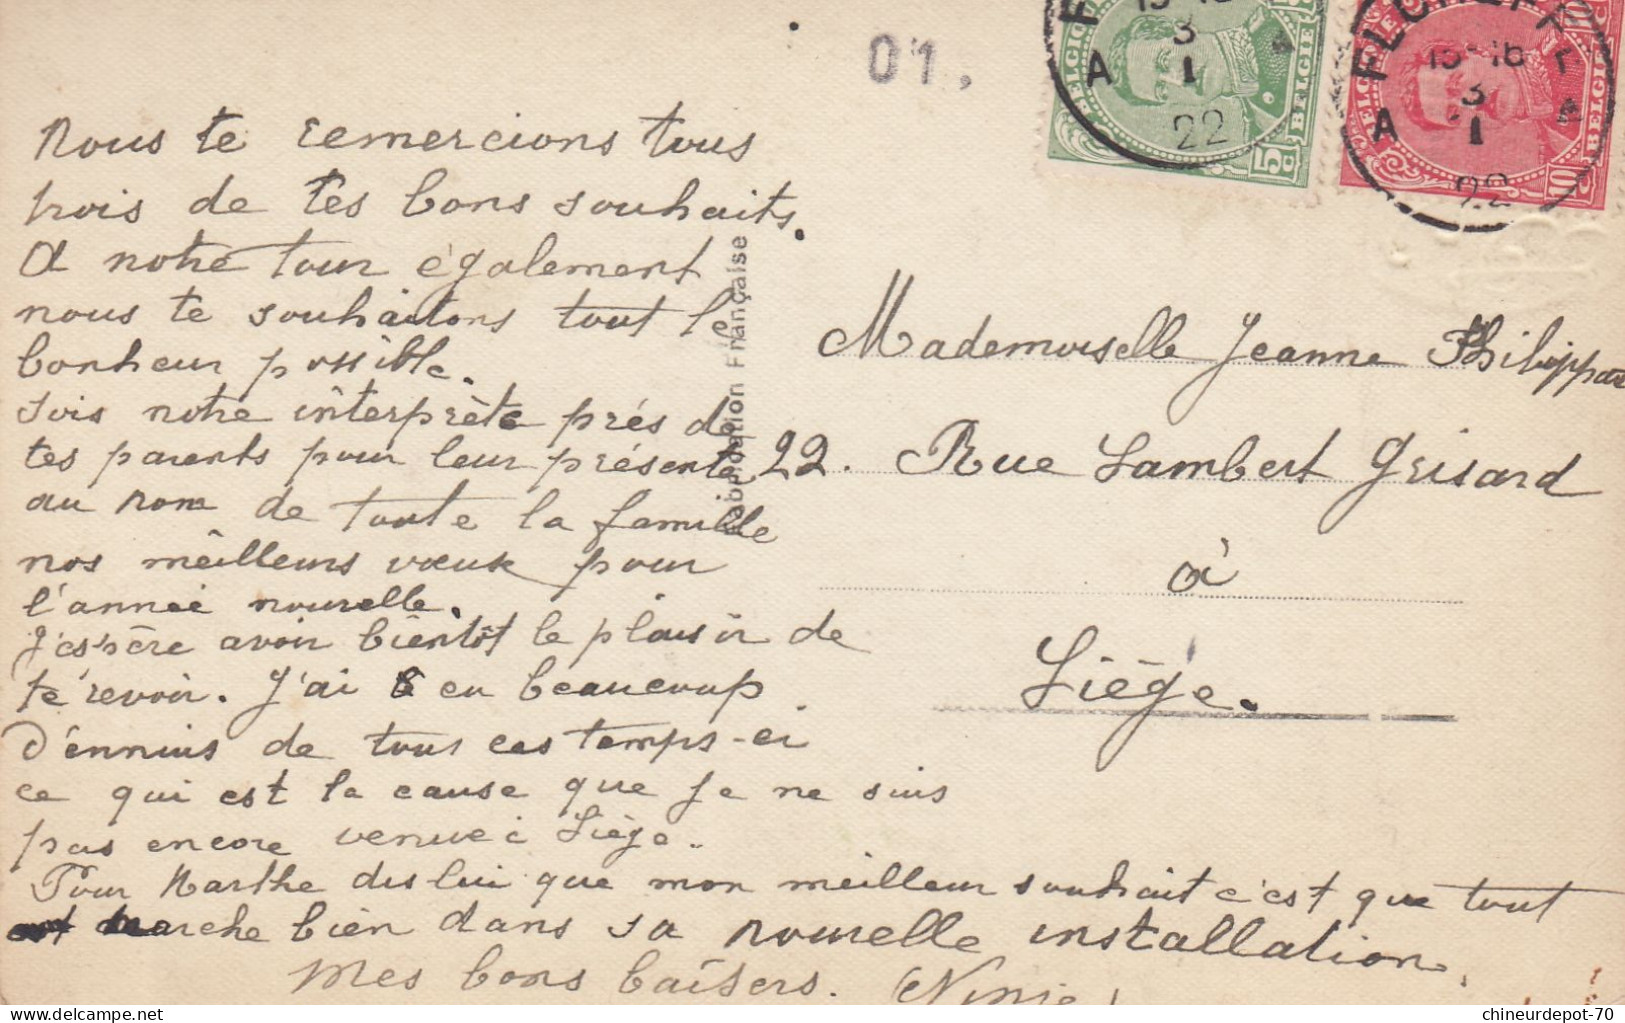 Nous te remercions tous
trois de tes bons souhaits.
A notre tour également
nous te souhaitons tout le
bonheur possible.
Sois notre interprète près de
tes parents pour leur présenter
au nom de toute la famille
nos meilleurs vœux pour
l'année nouvelle.
J'espère avoir bientôt le plaisir de
te revoir. J'ai eu beaucoup
d'ennuis de tous ces temps-ci
ce qui est la cause que je ne suis
pas encore venue à Liège.
Pour Marthe dis lui que mon meilleur souhait c'est que tout
marche bien dans sa nouvelle installation.
Mes bons baisers. (Ninie)
Fabrication Française
01,
15-16
3
1
22
A
5c
BELGIQUE
BELGIE
FLOREFFE
15-16
3
1
22
A
10c
BELGIQUE
BELGIE
Mademoiselle Jeanne Philippart
22. Rue Lambert Grisard
à
Liège.
chineurdepot-70